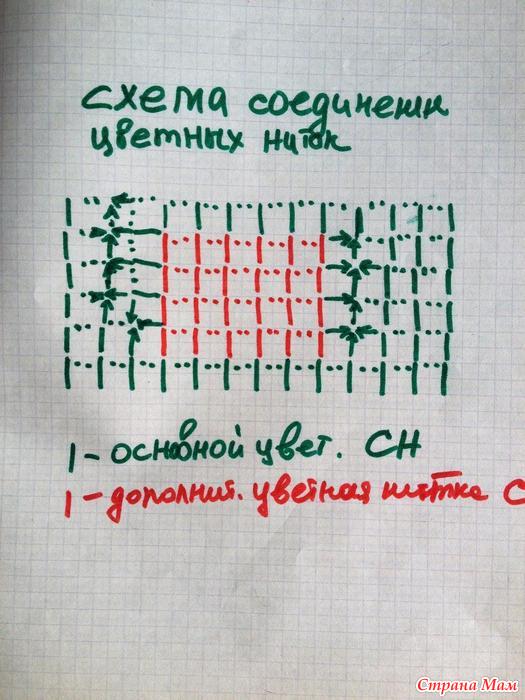 схема соединени
цветных ниток
| - основной цвет. СН
| - дополнит. цветная нитка С
Страна Мам